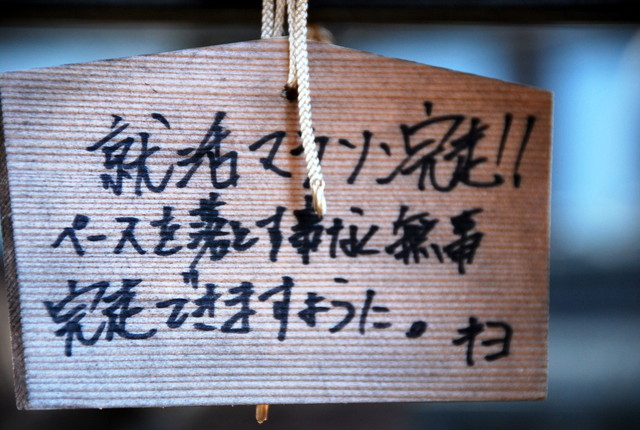 就活マラソン完走!!
ペースを落とす事なく無事
完走できますように。
キヨ